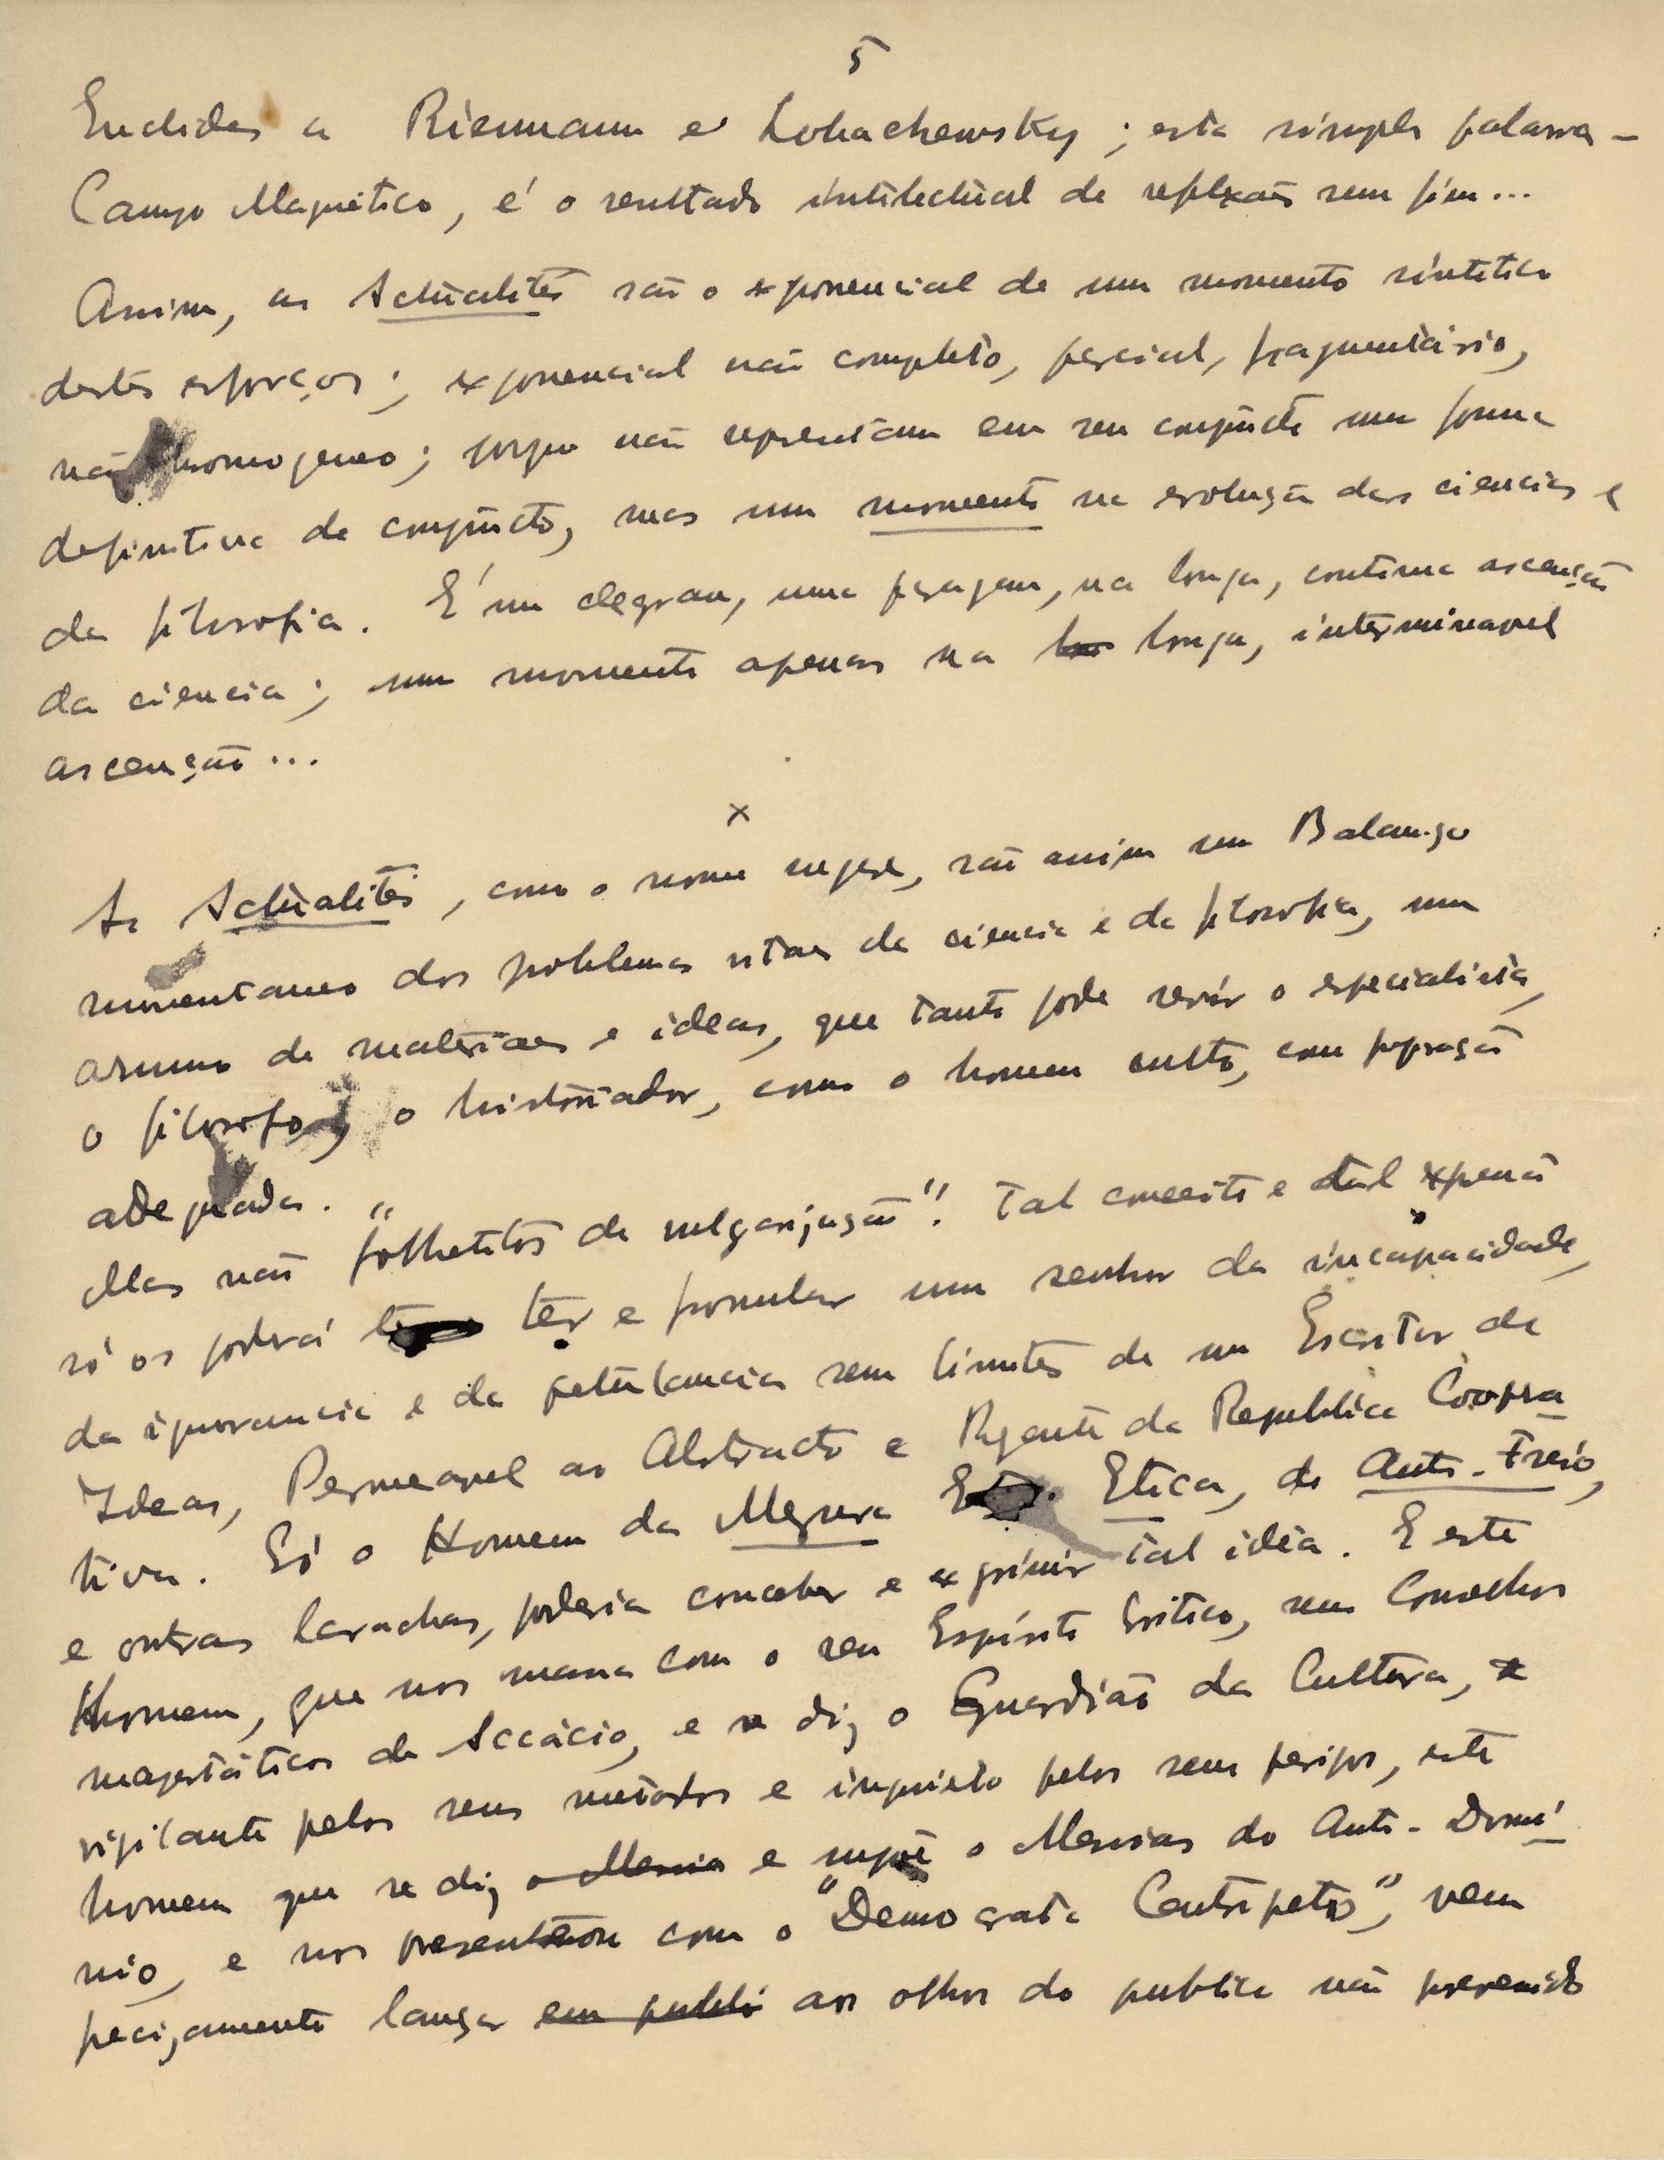 5
Euclides a Riemann e Lobachewsky; esta simples palavra –
Campo Magnético, é o resultado intelectual de reflexões sem fim...
Assim, as Actualités são o exponencial de um momento sintetico
destes esforços; exponencial não completo, parcial, fragmentário,
não homogeneo; porque não representam em seu conjuncto uma forma
definitiva de conjuncto, mas um momento na evolução das ciencias e
da filosofia. É um degrau, uma paragem, na longa, continua ascenção
da ciencia; um momento apenas na longa, interminavel
ascenção...
x
As Actualités, como o nome sugere, são assim um Balanço
momentaneo dos problemas vitaes da ciencia e da filosofia, um
acumulo de materiaes e ideas, que tanto pode servir o especialista,
o filosofo, o historiador, como o homem culto, com preparação
adequada.
Mas não "folhetitos de vulgarização"! Tal conceito e tal expressão
só os poderá ter e formular um senhor da incapacidade,
da ignorancia e da petulancia sem limites de um Escritor de
Ideas, Permeavel ao Abstracto e Regente da Republica Coopera
tiva. Só o Homem da Megera Etica, do Anti-Freio,
e outras larachas, poderia conceber e exprimir tal idéa. E este
Homem, que nos massa com o seu Espírito Critico, seus Conselhos
majestáticos de Accácio, e se diz o Guardião da Cultura,
vigilante pelos seus metodos e inquieto pelos seus perigos, este
homem que se diz o Messia e supõe o Messias do Anti-Domí
nio, e nos presenteou com o "Democrata Centrípeto", vem
peciçamente lançar em publi aos olhos do publico não prevenido